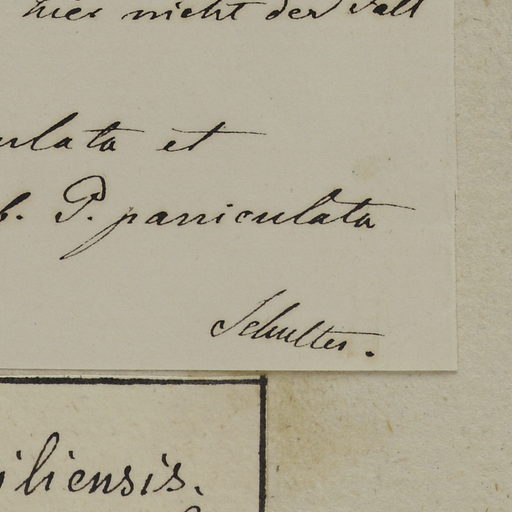 hier nicht der Fall
ulata et
b. P. paniculata
Schulter.
iliensis.